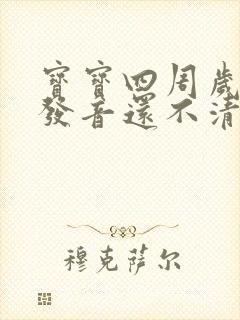 寶寶四周歲
發音還不清
穆克萨尔